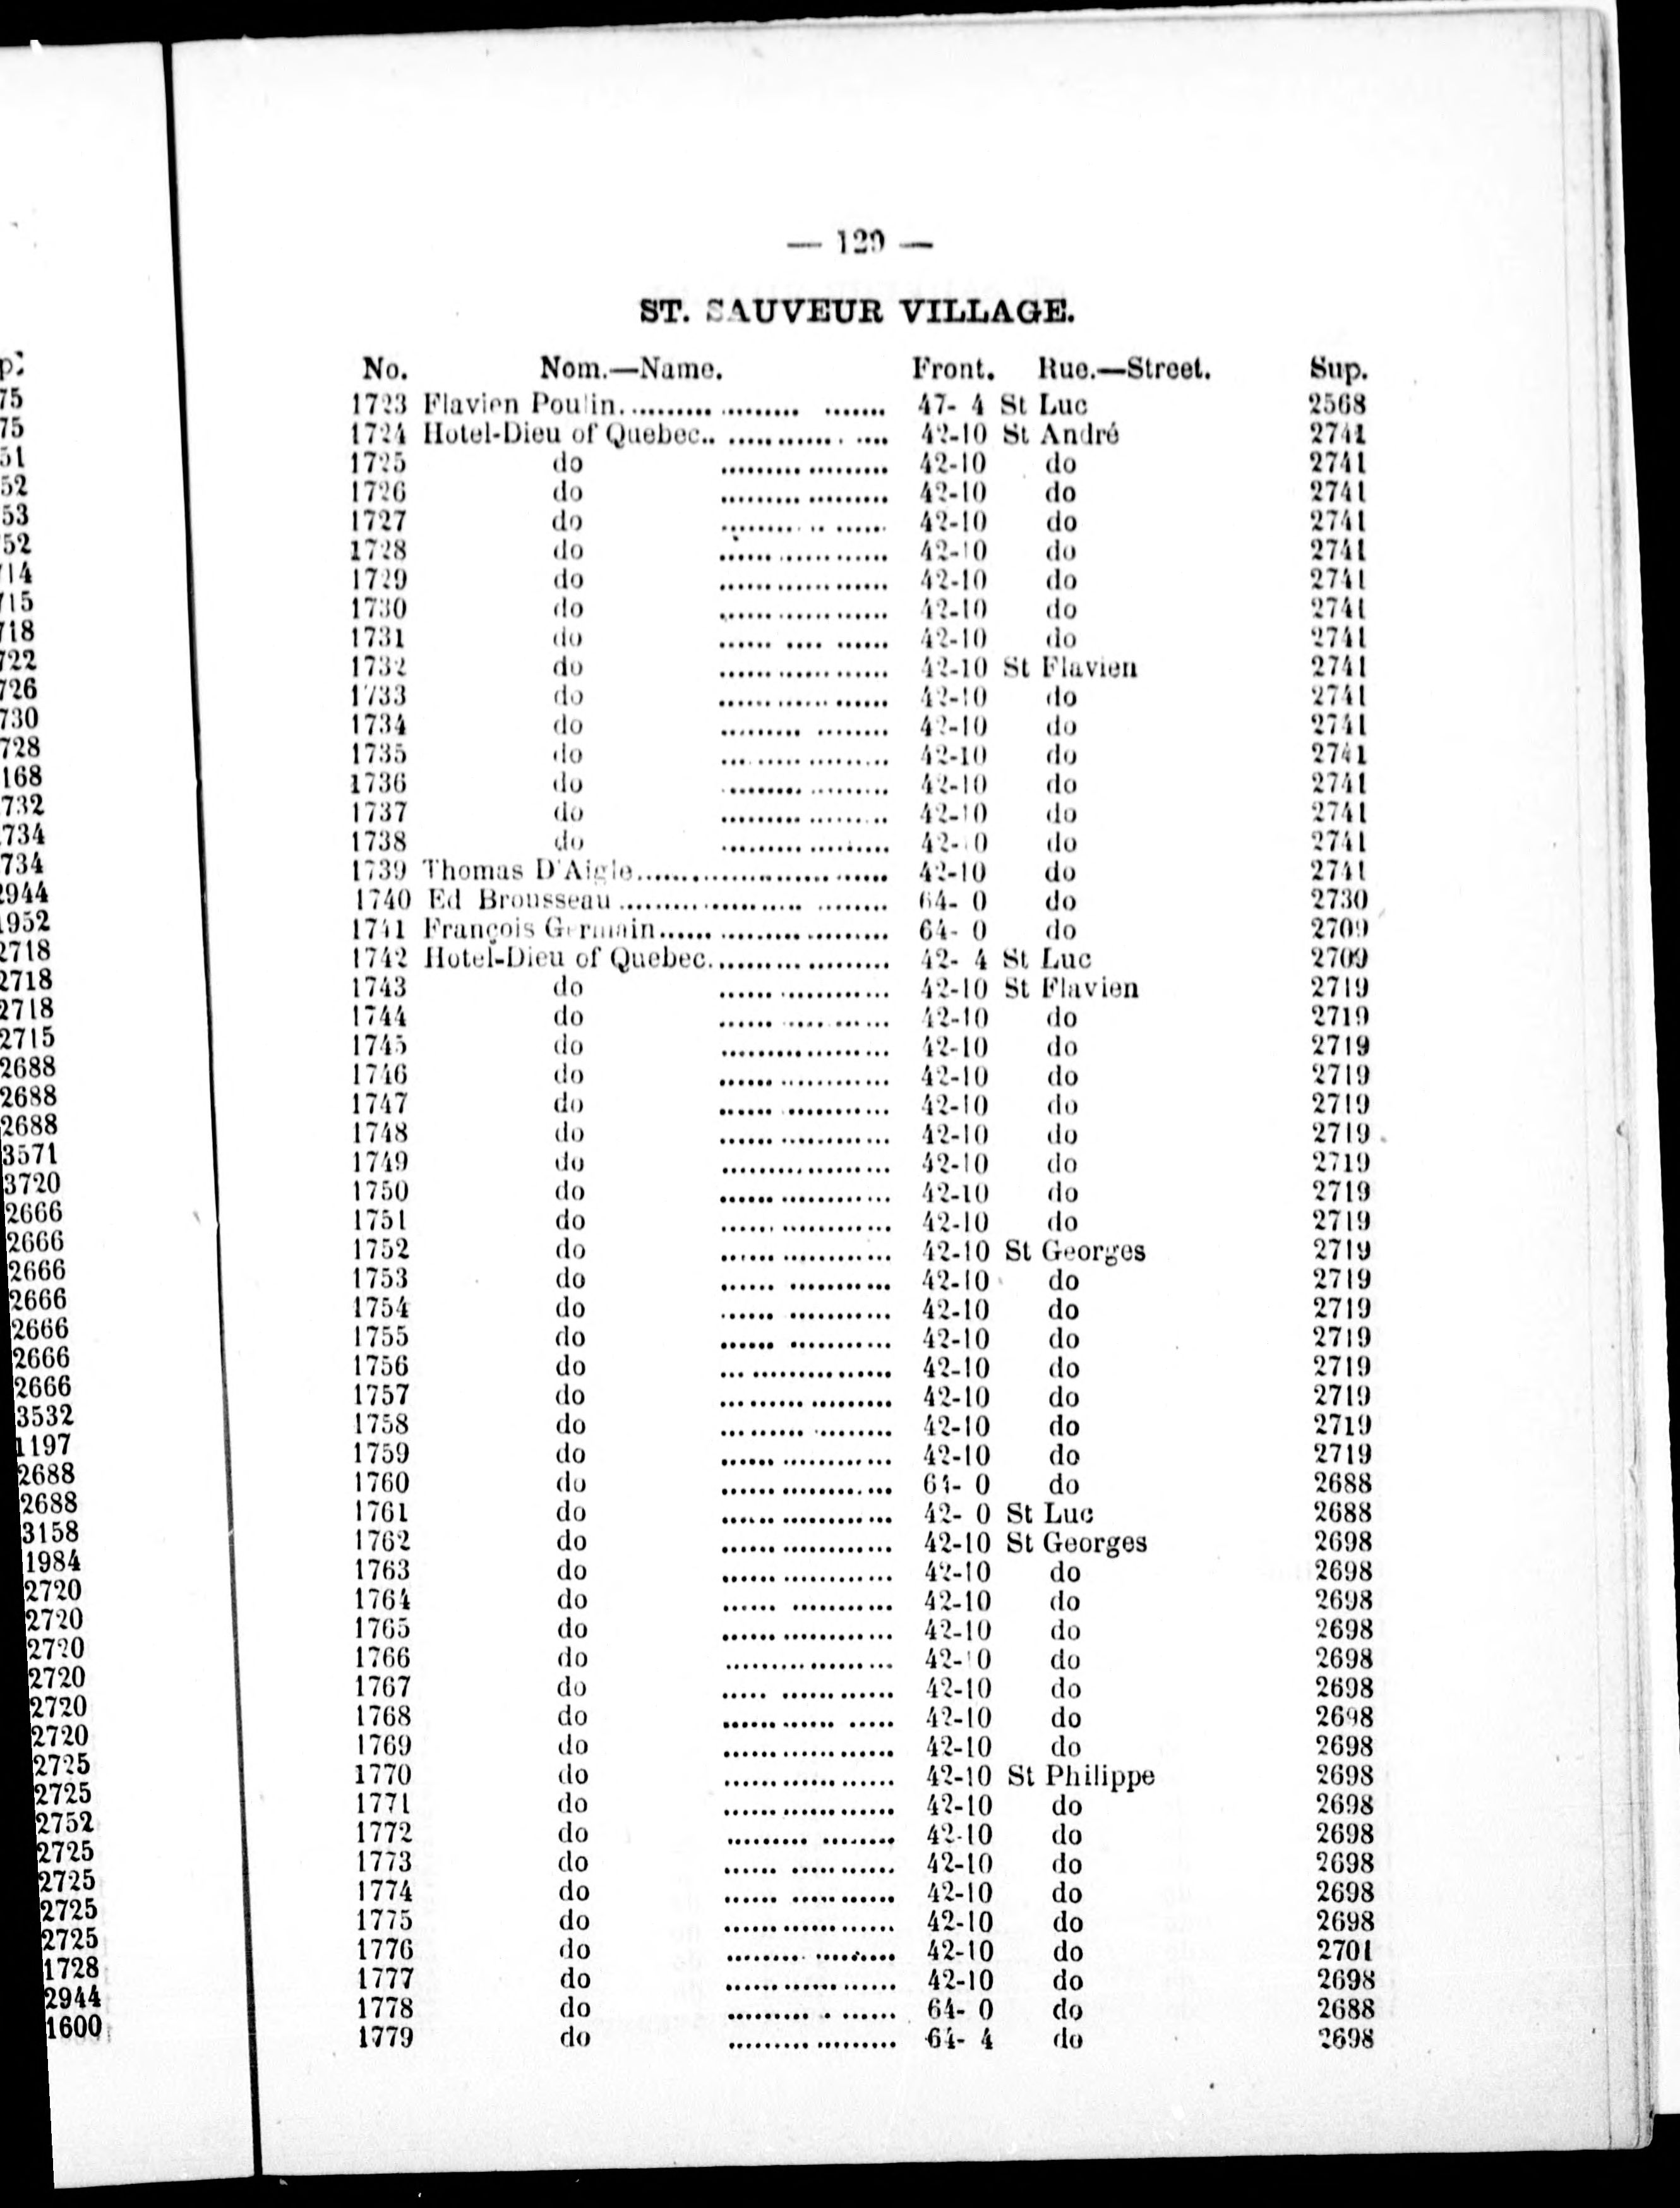 — 129 —
ST. SAUVEUR VILLAGE.
No. Nom.—Name. Front. Rue.—Street. Sup.
1723 Flavien Poulin. 47- 4 St Luc 2568
1724 Hotel-Dieu of Quebec. 42-10 St André 2741
1725 do 42-10 do 2741
1726 do 42-10 do 2741
1727 do 42-10 do 2741
1728 do 42-10 do 2741
1729 do 42-10 do 2741
1730 do 42-10 do 2741
1731 do 42-10 do 2741
1732 do 42-10 St Flavien 2741
1733 do 42-10 do 2741
1734 do 42-10 do 2741
1735 do 42-10 do 2741
1736 do 42-10 do 2741
1737 do 42-10 do 2741
1738 do 42-10 do 2741
1739 Thomas D'Aigle 42-10 do 2741
1740 Ed Brousseau 64- 0 do 2730
1741 François Germain 64- 0 do 2709
1742 Hotel-Dieu of Quebec. 42- 4 St Luc 2709
1743 do 42-10 St Flavien 2719
1744 do 42-10 do 2719
1745 do 42-10 do 2719
1746 do 42-10 do 2719
1747 do 42-10 do 2719
1748 do 42-10 do 2719
1749 do 42-10 do 2719
1750 do 42-10 do 2719
1751 do 42-10 do 2719
1752 do 42-10 St Georges 2719
1753 do 42-10 do 2719
1754 do 42-10 do 2719
1755 do 42-10 do 2719
1756 do 42-10 do 2719
1757 do 42-10 do 2719
1758 do 42-10 do 2719
1759 do 42-10 do 2719
1760 do 64- 0 do 2688
1761 do 42- 0 St Luc 2688
1762 do 42-10 St Georges 2698
1763 do 42-10 do 2698
1764 do 42-10 do 2698
1765 do 42-10 do 2698
1766 do 42-10 do 2698
1767 do 42-10 do 2698
1768 do 42-10 do 2698
1769 do 42-10 do 2698
1770 do 42-10 St Philippe 2698
1771 do 42-10 do 2698
1772 do 42-10 do 2698
1773 do 42-10 do 2698
1774 do 42-10 do 2698
1775 do 42-10 do 2698
1776 do 42-10 do 2701
1777 do 42-10 do 2698
1778 do 64- 0 do 2688
1779 do 64- 4 do 2698